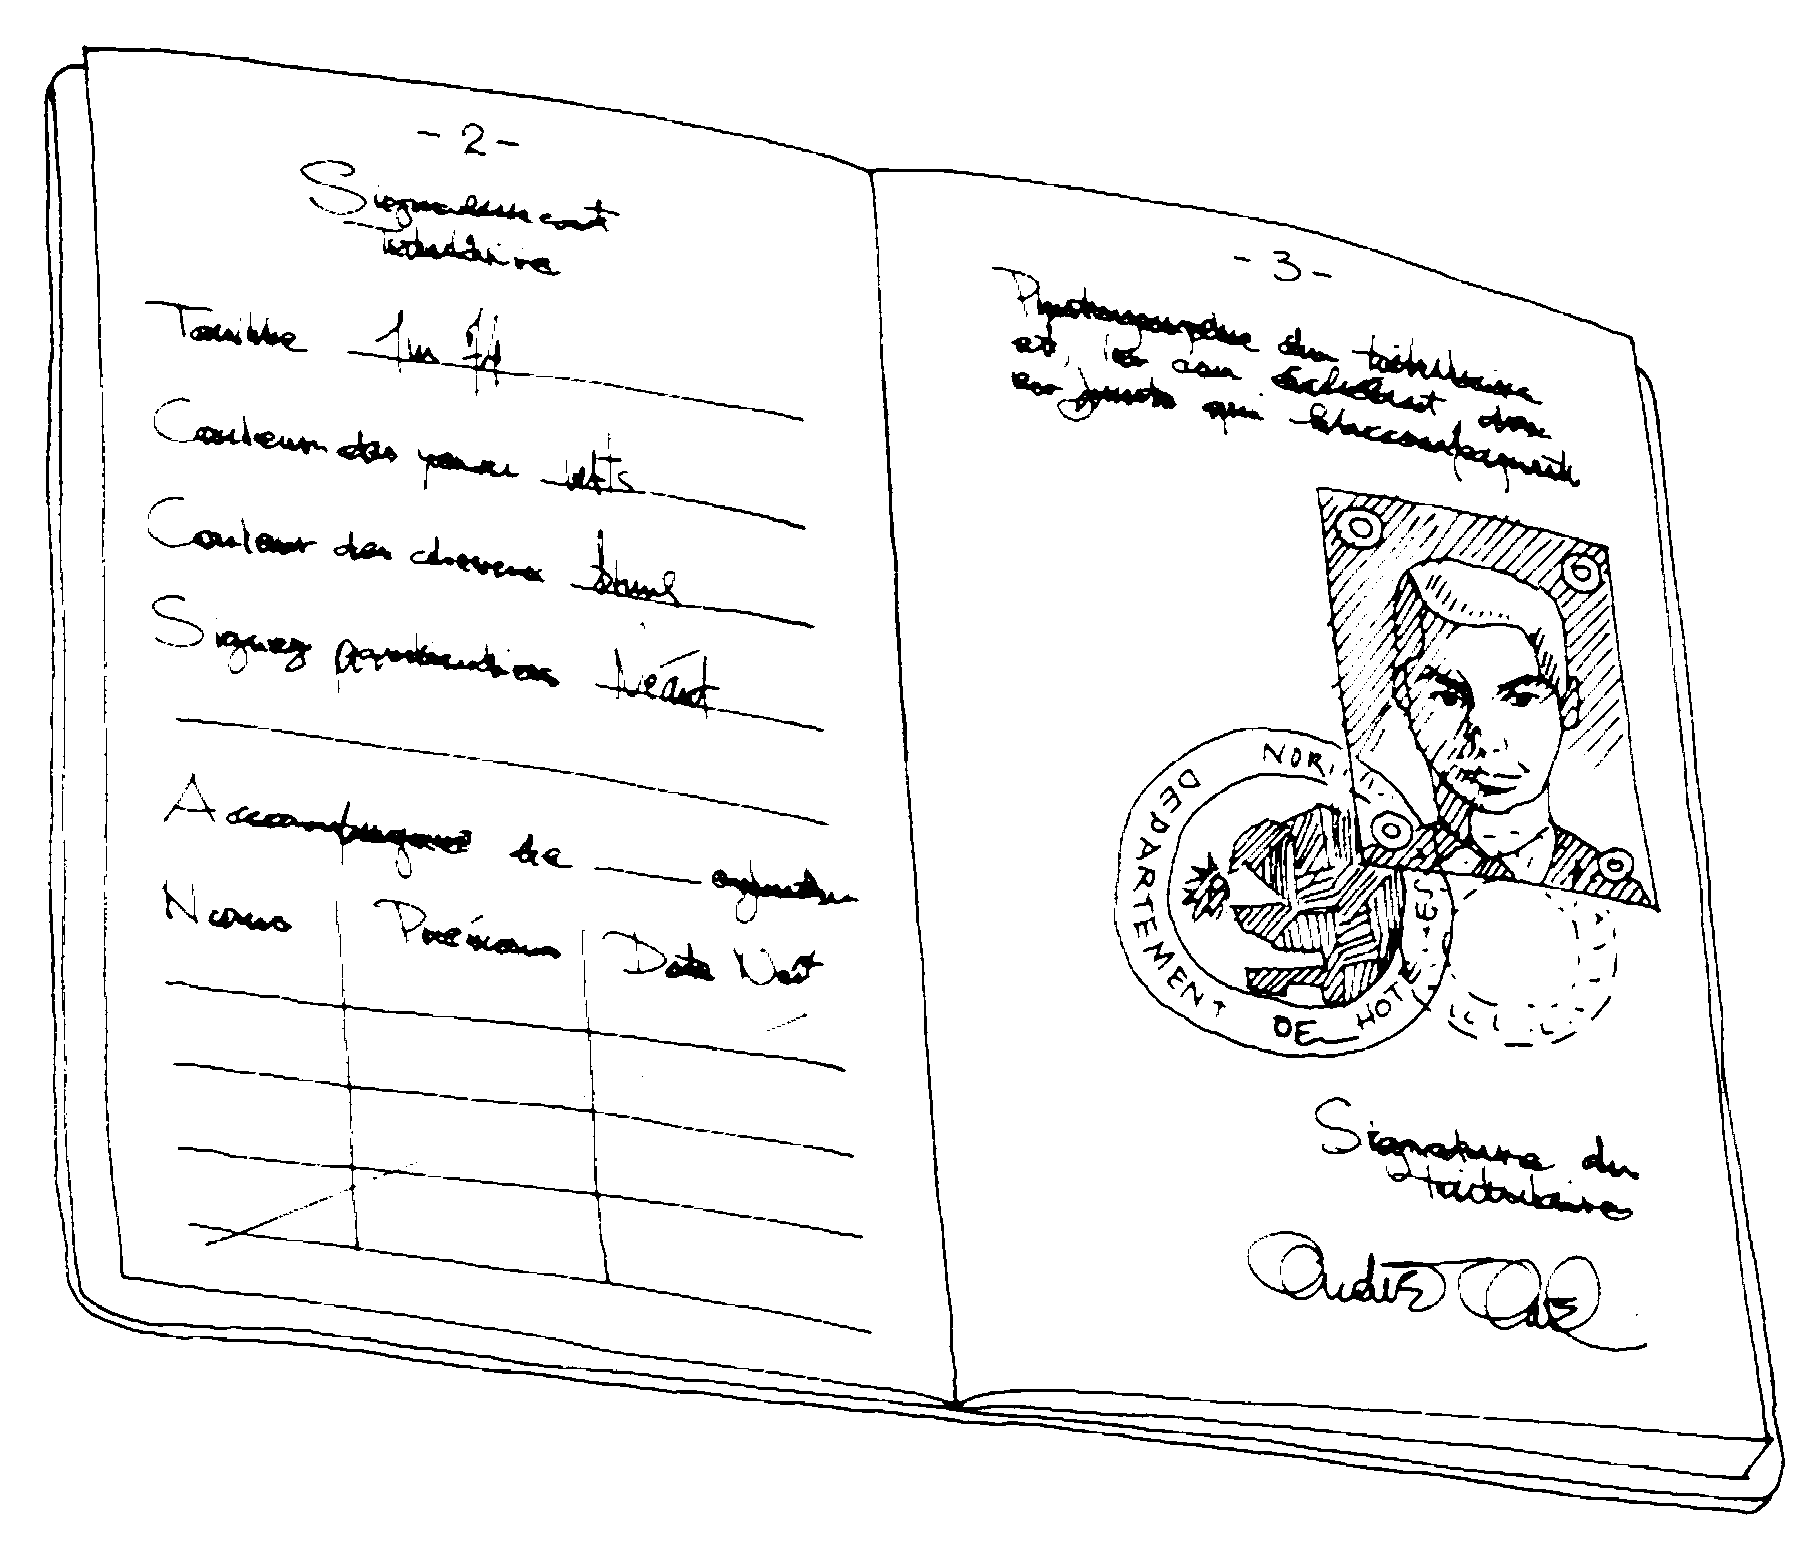 - 2 -
Signalement
Titulaire
Taille 1m
Couleur des yeux
Couleur des cheveux bruns
Signes particuliers Néant
Accompagné de enfants
Noms Prénoms Date Nais
- 3 -
Photographie du titulaire
et, le cas échéant, des
enfants qui l'accompagnent
NOR
DEPARTEMENT DE HOT
Signature du
titulaire